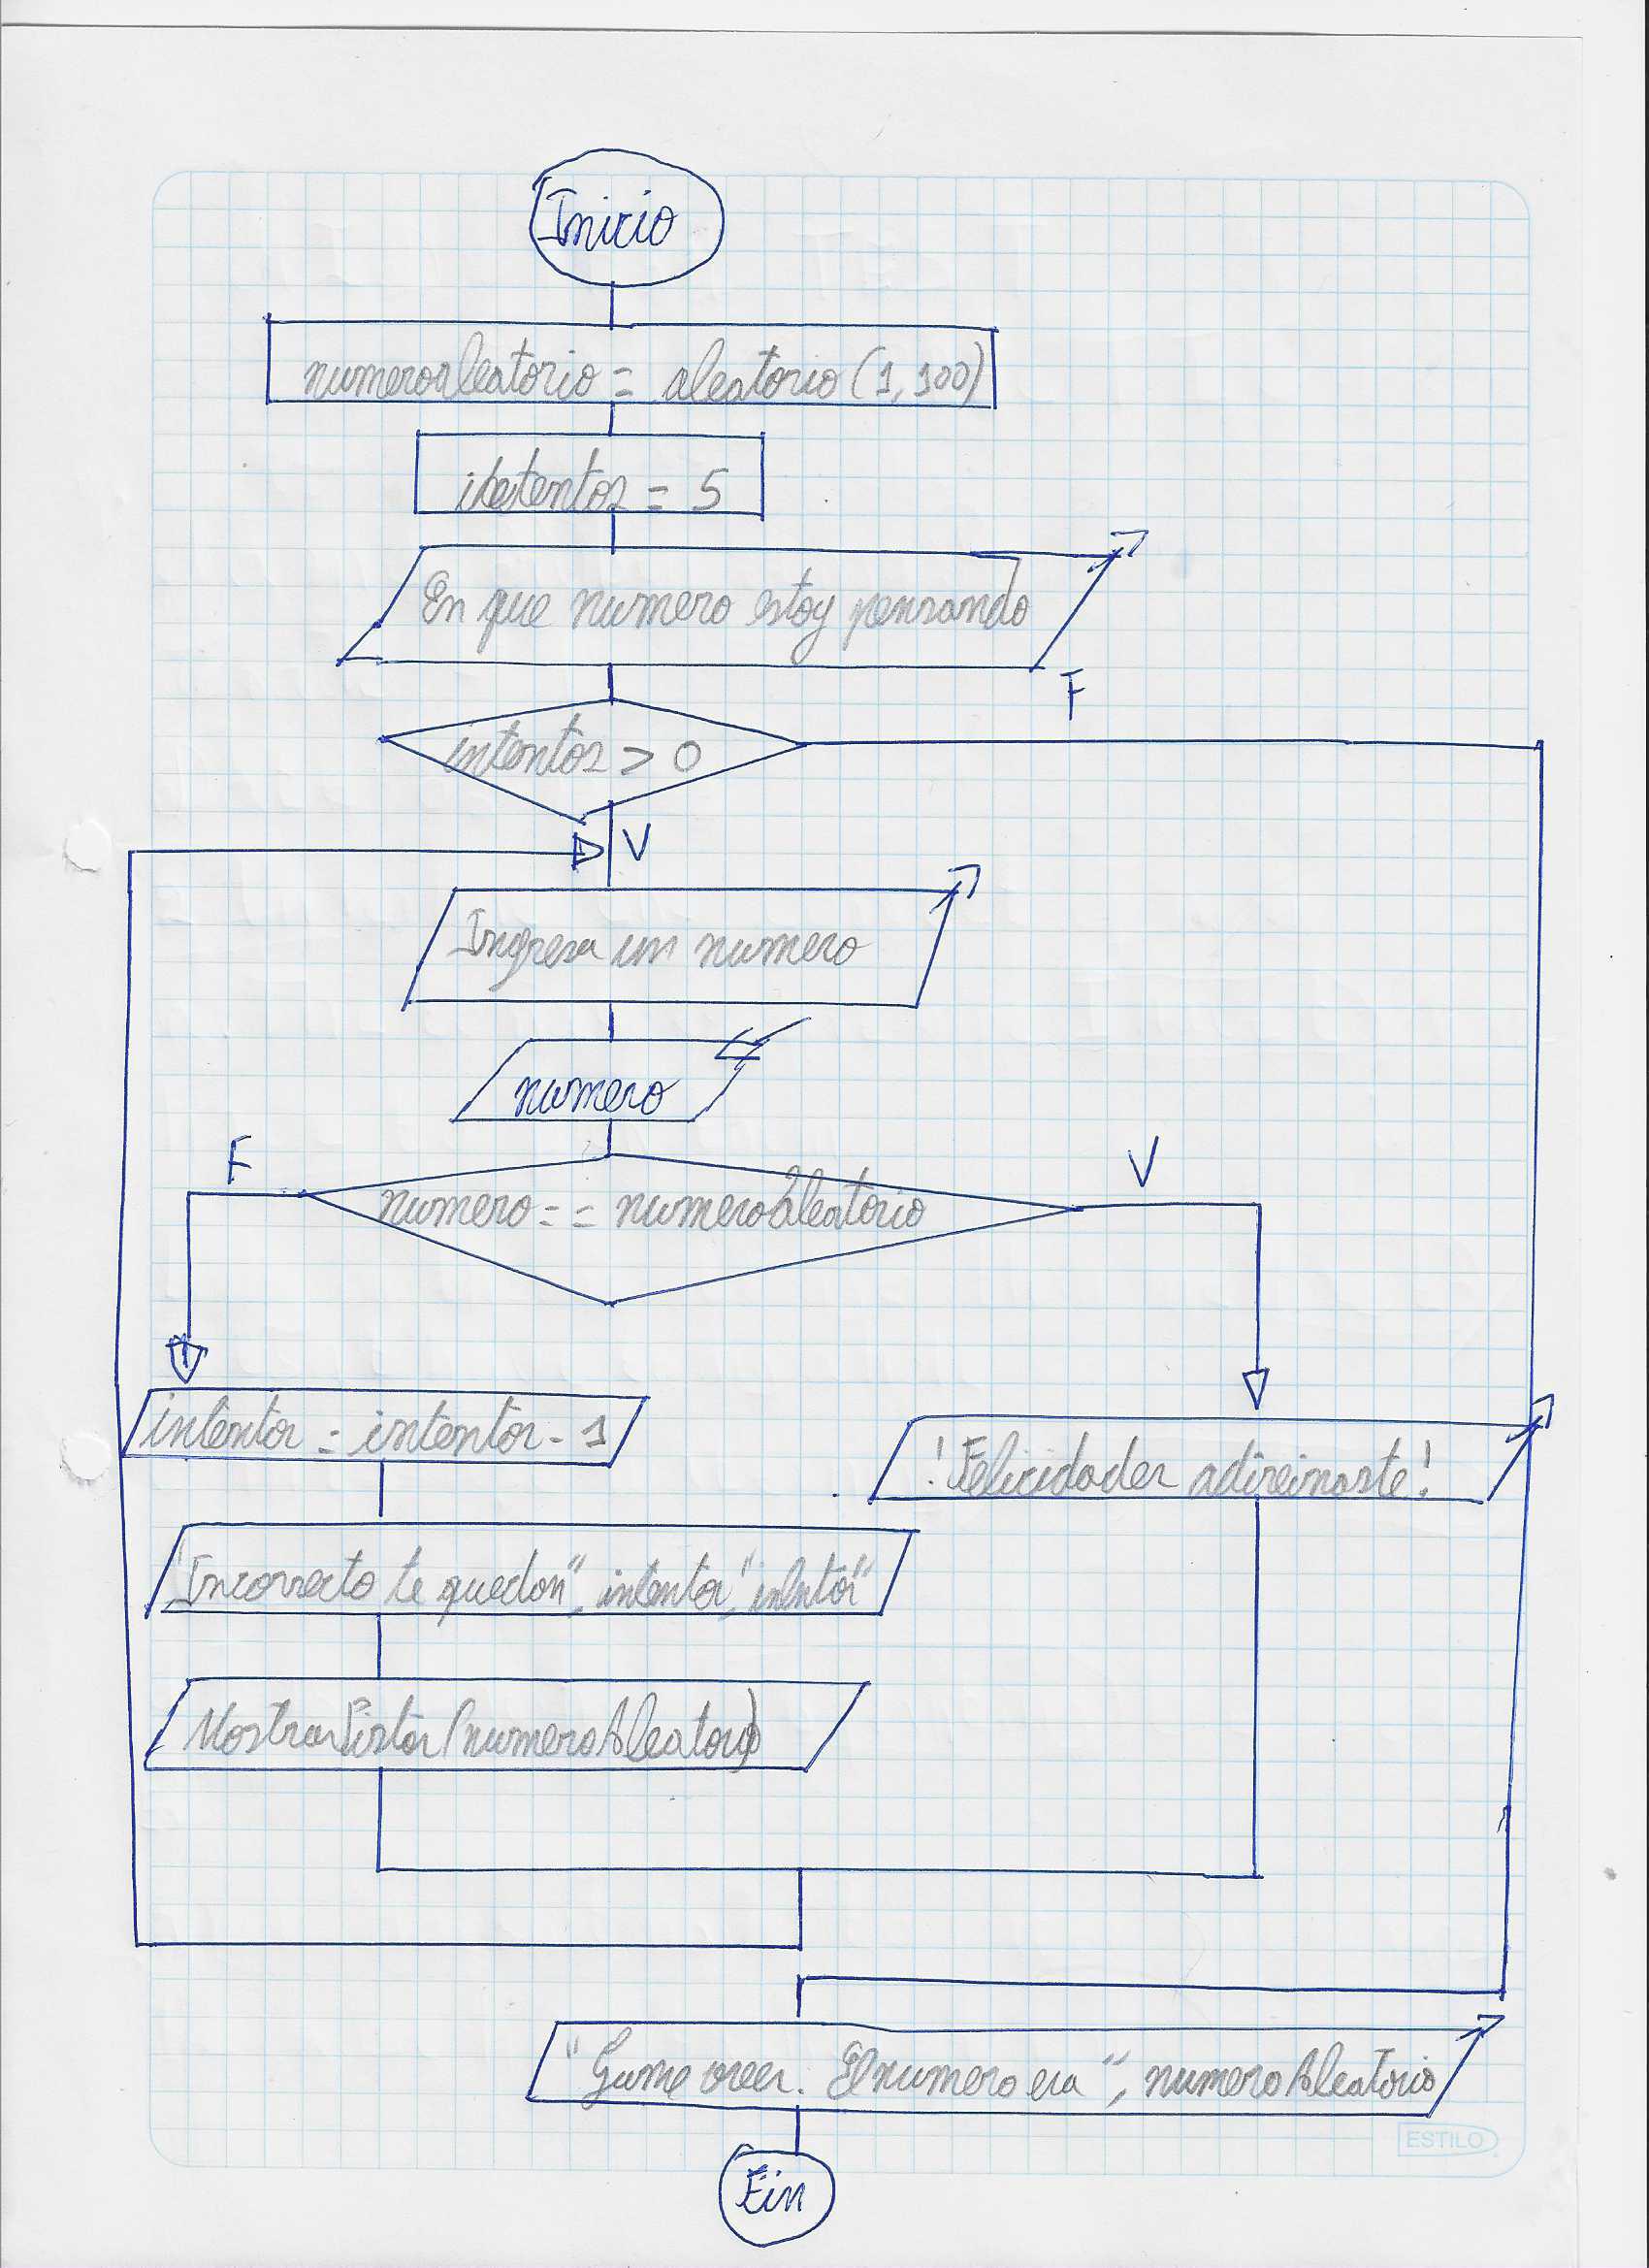 Inicio
numeroaleatorio = aleatorio (1, 100)
intentos = 5
En que numero estoy pensando
F
intentos > 0
V
Ingresa un numero
numero
F
V
numero == numeroAleatorio
intentos = intentos - 1
! Felicidades adivinaste!
"Incorrecto te quedan", intentos, "intentos"
MostrarPistas(numeroAleatorio)
"Game over. El numero era", numeroAleatorio
ESTILO
Fin